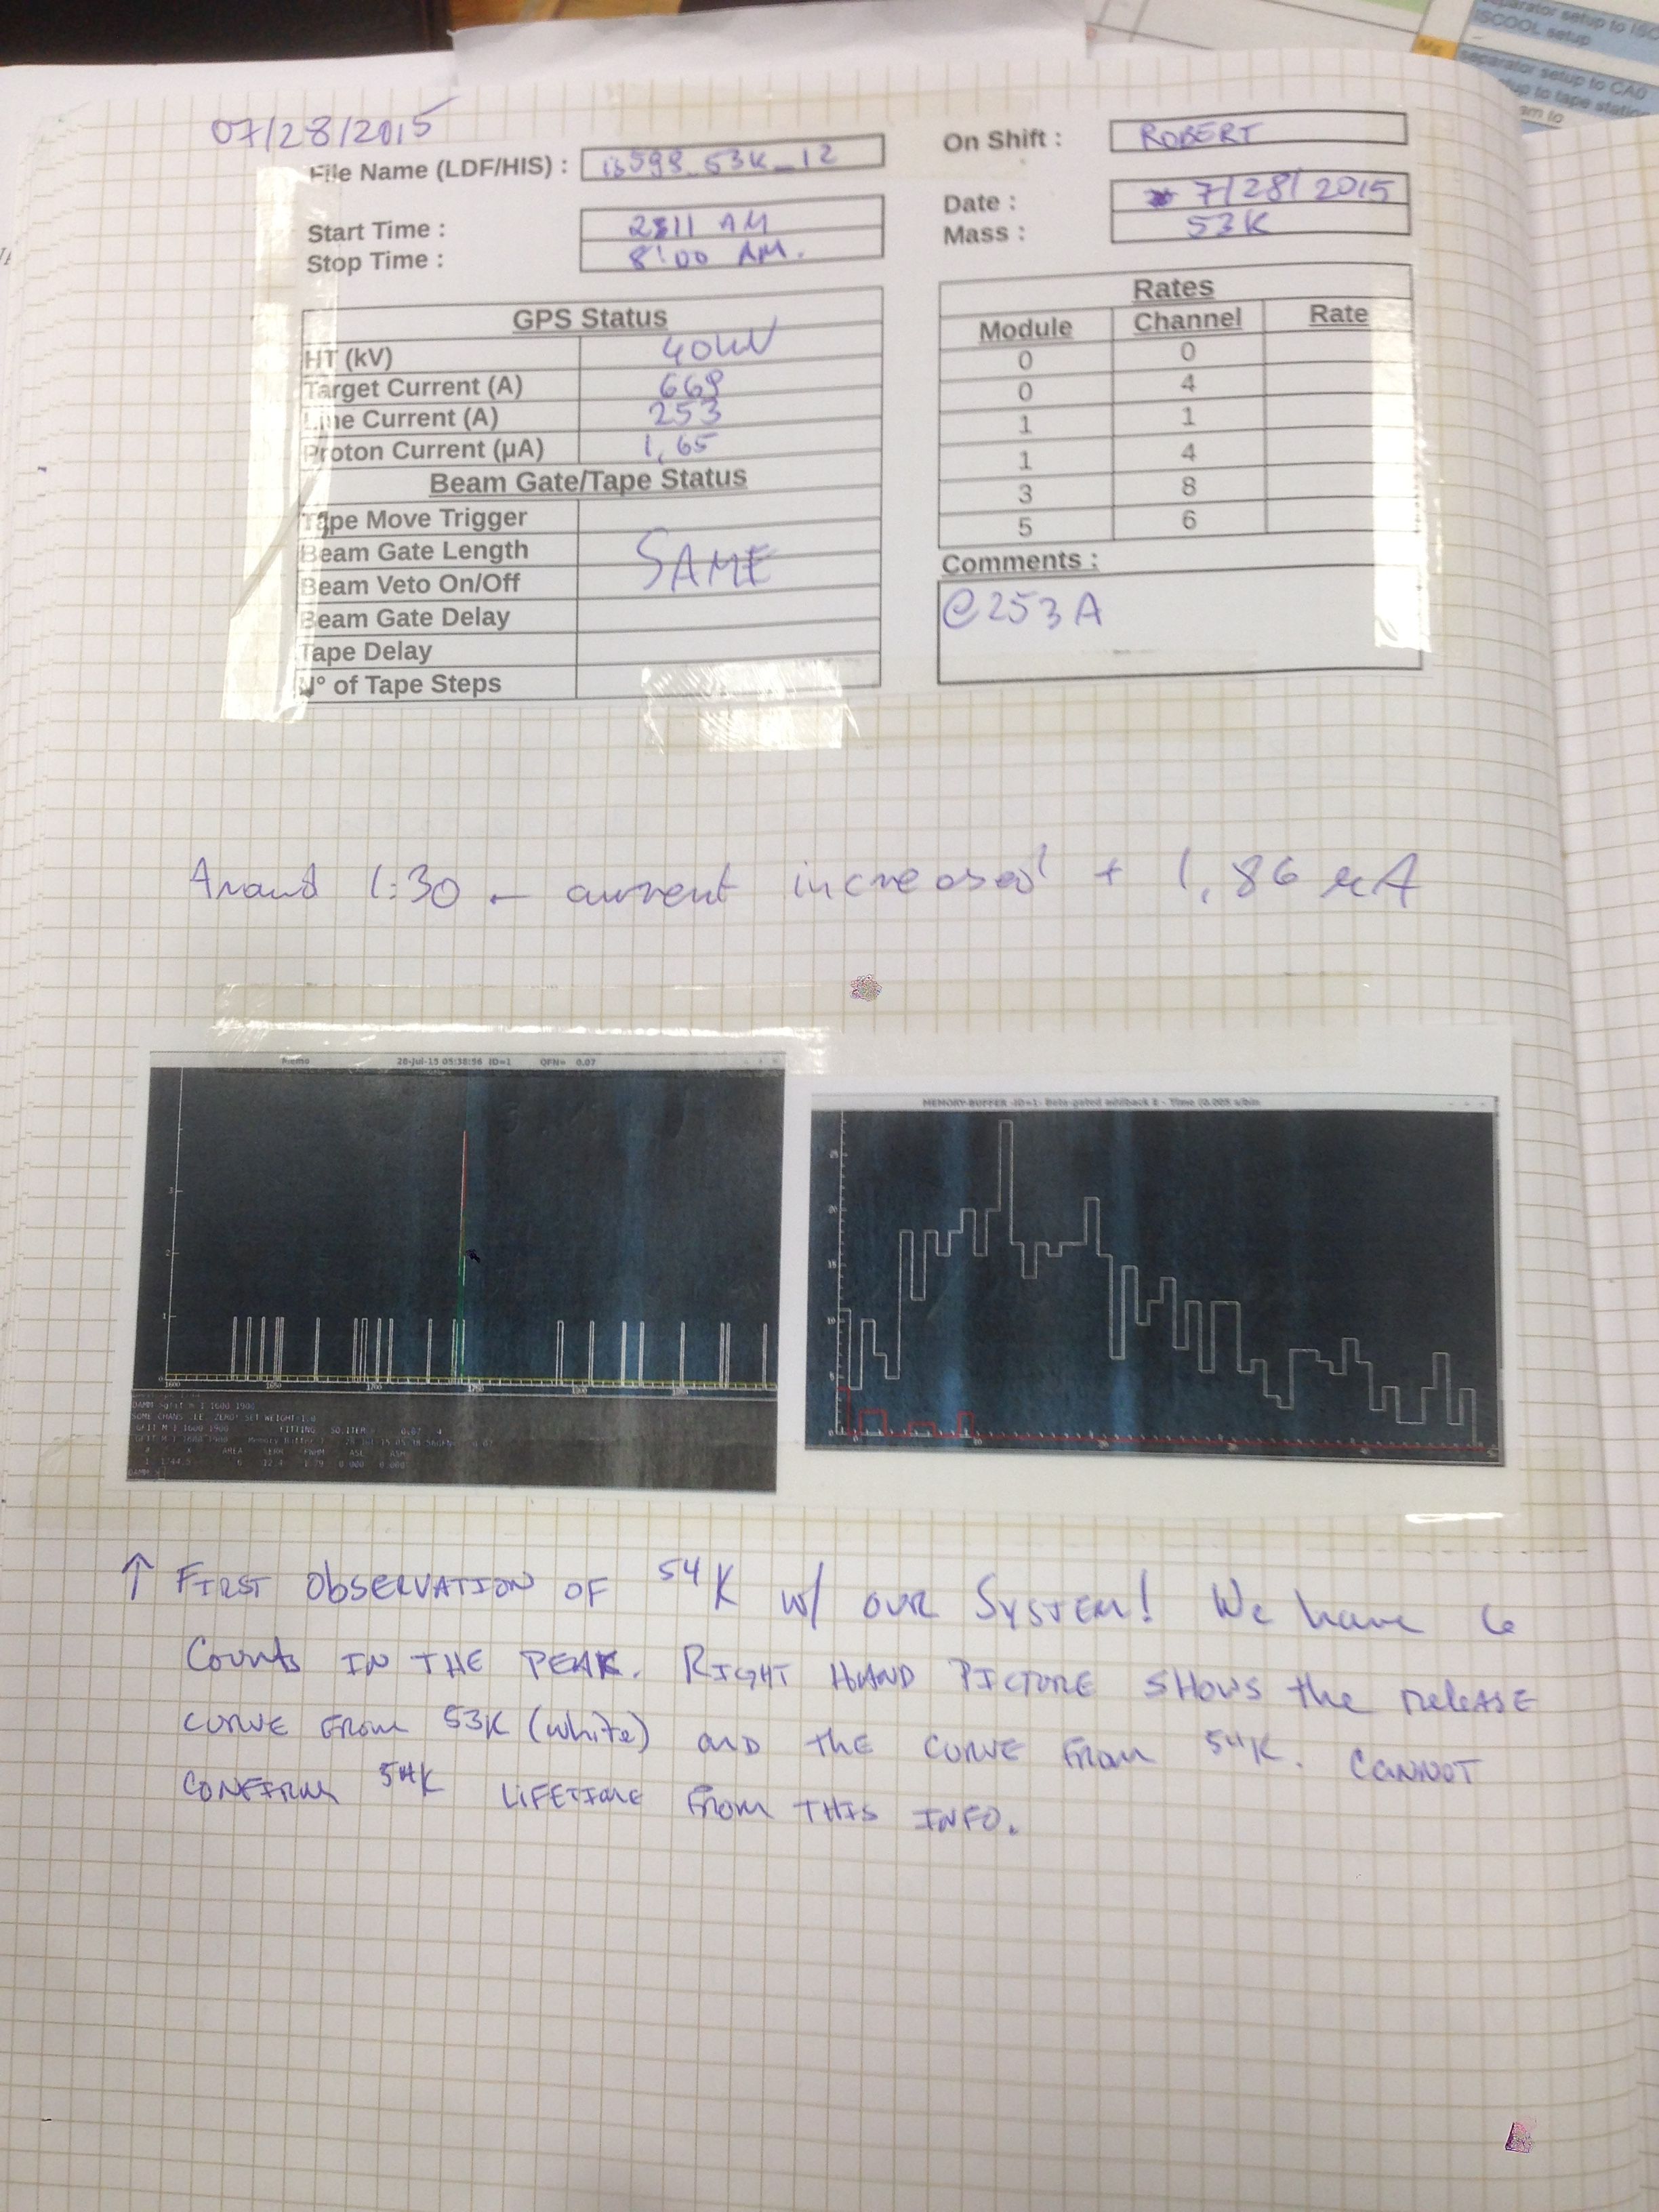 separator setup to ISC
ISCOOL setup
separator setup to CA0
up to tape station
07/28/2015
File Name (LDF/HIS) : is598_53K_12
On Shift : ROBERT
Start Time : 2:11 AM
Stop Time : 8:00 AM.
Date : 7/28/2015
Mass : 53K
GPS Status
HT (kV) 40kV
Target Current (A) 669
Line Current (A) 253
Proton Current (µA) 1,65
Beam Gate/Tape Status
Tape Move Trigger
Beam Gate Length
Beam Veto On/Off
SAME
Beam Gate Delay
Tape Delay
N° of Tape Steps
Rates
Module Channel Rate
0 0
0 4
1 1
1 4
3 8
5 6
Comments :
@253A
Around 1:30 – current increased + 1,86 µA
28-Jul-15 05:38:56 ID=1 QFN= 0.07
3
2
1
0
1600 1650 1700 1750
MEMORY-BUFFER -ID=1- Beta-gated addback E - Time (0.005 s/bin
↑ FIRST ObSERVATION OF 54K w/ OUR SYSTEM! We have 6
Counts IN THE PEAK. RIGHT HAND PICTURE SHOWS the RELEASE
CURVE FROM 53K (white) AND THE CURVE FROM 54K. CANNOT
CONFIRM 54K LIFETIME FROM THIS INFO.